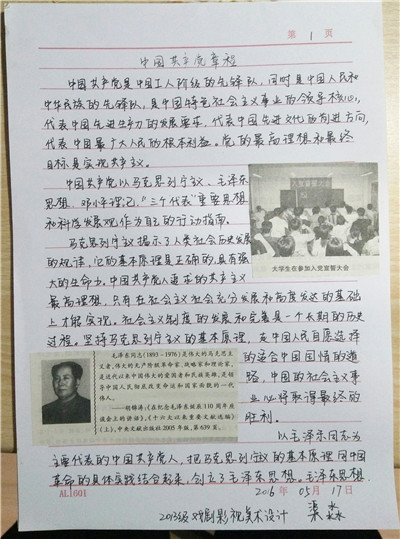 第 1 页
中国共产党章程
中国共产党是中国工人阶级的先锋队，同时是中国人民和
中华民族的先锋队，是中国特色社会主义事业的领导核心，
代表中国先进生产力的发展要求，代表中国先进文化的前进方向，
代表中国最广大人民的根本利益。党的最高理想和最终
目标是实现共产主义。
中国共产党以马克思列宁主义、毛泽东
思想、邓小平理论、“三个代表”重要思想
和科学发展观作为自己的行动指南。
马克思列宁主义揭示了人类社会历史发展
的规律，它的基本原理是正确的，具有强
大的生命力。中国共产党人追求的共产主义
最高理想，只有在社会主义社会充分发展和高度发达的基础
上才能实现。社会主义制度的发展和完善是一个长期的历史
过程。坚持马克思列宁主义的基本原理，走中国人民自愿选择
的适合中国国情的道
路，中国的社会主义事
业必将取得最终的
胜利。
以毛泽东同志为
主要代表的中国共产党人，把马克思列宁主义的基本原理同中国
革命的具体实践结合起来，创立了毛泽东思想。毛泽东思想
大学生在参加入党宣誓大会
毛泽东同志(1893－1976)是伟大的马克思主
义者，伟大的无产阶级革命家、战略家和理论家，
是近代以来中国伟大的爱国者和民族英雄，是领
导中国人民彻底改变命运和国家面貌的一代
伟人。
——胡锦涛：《在纪念毛泽东诞辰110周年座
谈会上的讲话》，《十六大以来重要文献选编》
(上)，中央文献出版社2005年版，第639页。
AL1601
2016 年 05 月 17 日
2013级 戏剧影视美术设计